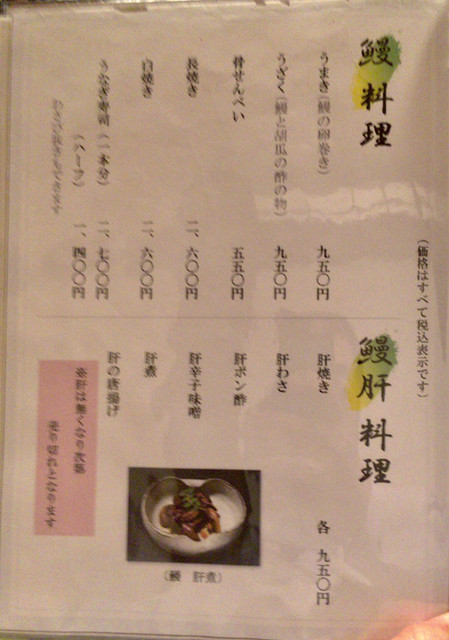 鰻料理
うまき(鰻の卵巻き) 九五〇円
うざく(鰻と胡瓜の酢の物) 九五〇円
骨せんべい 五五〇円
長焼き 二、六〇〇円
白焼き 二、六〇〇円
うなぎ寿司(一本分) 二、七〇〇円
(ハーフ) 一、四〇〇円
わさび抜きもできます
(価格はすべて税込表示です)
鰻肝料理
肝焼き 各 九五〇円
肝わさ
肝ポン酢
肝辛子味噌
肝煮
肝の唐揚げ
※肝は無くなり次第
売り切れとなります
(鰻 肝煮)